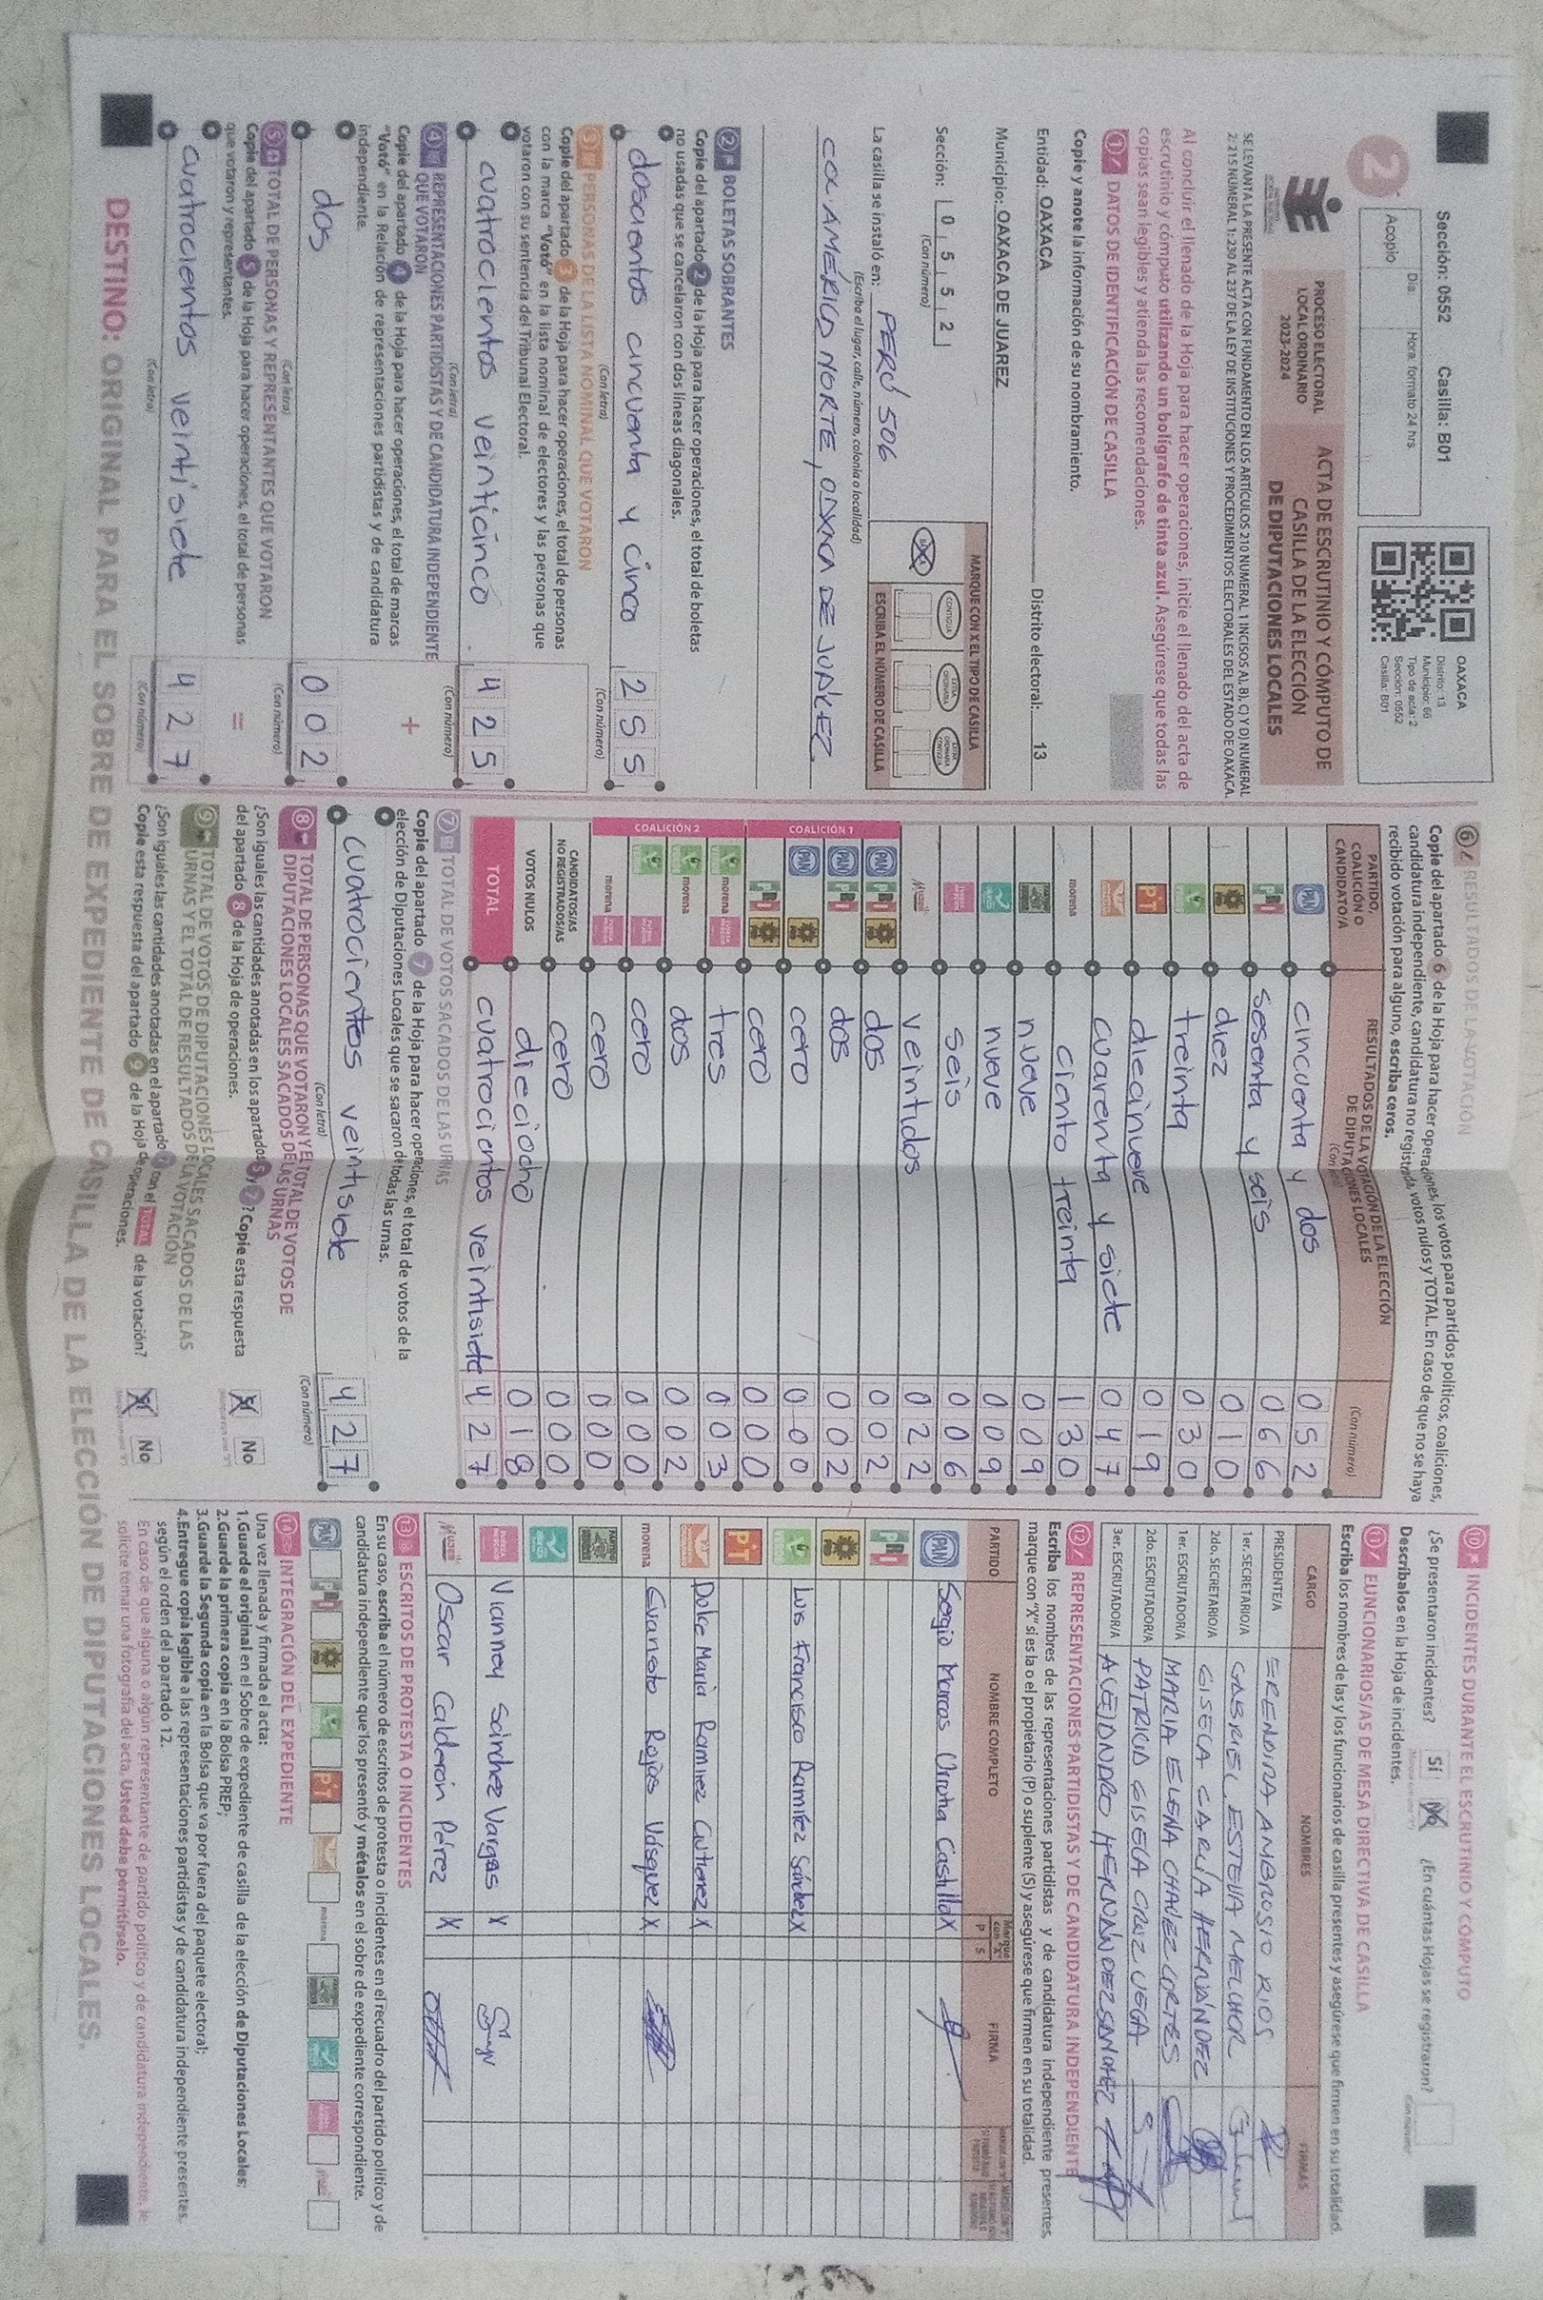 Sección: 0552 Casilla: B01
Día: Hora, formato 24 hrs.
Acopio
OAXACA
Distrito: 13
Municipio: 66
Tipo de acta: 2
Sección: 0552
Casilla: B01
2
PROCESO ELECTORAL
LOCAL ORDINARIO
2023-2024
ACTA DE ESCRUTINIO Y CÓMPUTO DE
CASILLA DE LA ELECCIÓN
DE DIPUTACIONES LOCALES
SE LEVANTA LA PRESENTE ACTA CON FUNDAMENTO EN LOS ARTÍCULOS 210 NUMERAL 1 INCISOS A), B), C) Y D) NUMERAL
2; 215 NUMERAL 1; 230 AL 237 DE LA LEY DE INSTITUCIONES Y PROCEDIMIENTOS ELECTORALES DEL ESTADO DE OAXACA.
Al concluir el llenado de la Hoja para hacer operaciones, inicie el llenado del acta de
escrutinio y cómputo utilizando un bolígrafo de tinta azul. Asegúrese que todas las
copias sean legibles y atienda las recomendaciones.
1 DATOS DE IDENTIFICACIÓN DE CASILLA
Copie y anote la información de su nombramiento.
Entidad: OAXACA Distrito electoral: 13
Municipio: OAXACA DE JUAREZ
Sección: 0 5 5 2
(Con número)
MARQUE CON X EL TIPO DE CASILLA
CONTIGUA
ESCRIBA EL NÚMERO DE CASILLA
La casilla se instaló en: PERÚ 506
(Escriba el lugar, calle, número, colonia o localidad)
COL AMÉRICA NORTE, OAXACA DE JUÁREZ
2 BOLETAS SOBRANTES
Copie del apartado 2 de la Hoja para hacer operaciones, el total de boletas
no usadas que se cancelaron con dos líneas diagonales.
doscientos cincuenta y cinco 2 5 5
(Con letra) (Con número)
3 PERSONAS DE LA LISTA NOMINAL QUE VOTARON
Copie del apartado 3 de la Hoja para hacer operaciones, el total de personas
con la marca "Votó" en la lista nominal de electores y las personas que
votaron con su sentencia del Tribunal Electoral.
cuatrocientos veinticinco 4 2 5
(Con letra) (Con número)
4 REPRESENTACIONES PARTIDISTAS Y DE CANDIDATURA INDEPENDIENTE
QUE VOTARON
Copie del apartado 4 de la Hoja para hacer operaciones, el total de marcas
"Votó" en la Relación de representaciones partidistas y de candidatura
independiente.
+
dos 0 0 2
(Con letra) (Con número)
5 TOTAL DE PERSONAS Y REPRESENTANTES QUE VOTARON
Copie del apartado 5 de la Hoja para hacer operaciones, el total de personas
que votaron y representantes.
=
cuatrocientos veintisiete 4 2 7
(Con letra) (Con número)
6 RESULTADOS DE LA VOTACIÓN
Copie del apartado 6 de la Hoja para hacer operaciones, los votos para partidos políticos, coaliciones,
candidatura independiente, candidatura no registrada, votos nulos y TOTAL. En caso de que no se haya
recibido votación para alguno, escriba ceros.
PARTIDO,
COALICIÓN O
CANDIDATO/A
RESULTADOS DE LA VOTACIÓN DE LA ELECCIÓN
DE DIPUTACIONES LOCALES
(Con letra)
(Con número)
PAN cincuenta y dos 0 5 2
PRI sesenta y seis 0 6 6
PRD diez 0 1 0
treinta 0 3 0
PT diecinueve 0 1 9
cuarenta y siete 0 4 7
morena ciento treinta 1 3 0
nueve 0 0 9
nueve 0 0 9
seis 0 0 6
veintidos 0 2 2
COALICIÓN 1
PAN PRI PRD dos 0 0 2
PAN PRI dos 0 0 2
PAN PRD cero 0 0 0
PRI PRD cero 0 0 0
COALICIÓN 2
morena tres 0 0 3
morena dos 0 0 2
cero 0 0 0
morena cero 0 0 0
CANDIDATOS/AS
NO REGISTRADOS/AS cero 0 0 0
VOTOS NULOS dieciocho 0 1 8
TOTAL cuatrocientos veintisiete 4 2 7
7 TOTAL DE VOTOS SACADOS DE LAS URNAS
Copie del apartado 7 de la Hoja para hacer operaciones, el total de votos de la
elección de Diputaciones Locales que se sacaron de todas las urnas.
cuatrocientos veintisiete 4 2 7
(Con letra) (Con número)
8 TOTAL DE PERSONAS QUE VOTARON Y EL TOTAL DE VOTOS DE
DIPUTACIONES LOCALES SACADOS DE LAS URNAS
¿Son iguales las cantidades anotadas en los apartados 5 y 7? Copie esta respuesta
del apartado 8 de la Hoja de operaciones.
Sí No
9 TOTAL DE VOTOS DE DIPUTACIONES LOCALES SACADOS DE LAS
URNAS Y EL TOTAL DE RESULTADOS DE LA VOTACIÓN
¿Son iguales las cantidades anotadas en el apartado 7 con el TOTAL de la votación?
Copie esta respuesta del apartado 9 de la Hoja de operaciones.
Sí No
10 INCIDENTES DURANTE EL ESCRUTINIO Y CÓMPUTO
¿Se presentaron incidentes? Sí No ¿En cuántas Hojas se registraron?
Descríbalos en la Hoja de incidentes.
11 FUNCIONARIOS/AS DE MESA DIRECTIVA DE CASILLA
Escriba los nombres de las y los funcionarios de casilla presentes y asegúrese que firmen en su totalidad.
CARGO NOMBRES FIRMAS
PRESIDENTE/A ERENDIRA AMBROSIO RIOS
1er. SECRETARIO/A GABRIEL ESTEVA MELCHOR
2do. SECRETARIO/A GISELA CARLA HERNÁNDEZ
1er. ESCRUTADOR/A MARIA ELENA CHAVEZ CORTES
2do. ESCRUTADOR/A PATRICIA GISELA CRUZ VEGA
3er. ESCRUTADOR/A ALEJANDRO HERNANDEZ SANCHEZ
12 REPRESENTACIONES PARTIDISTAS Y DE CANDIDATURA INDEPENDIENTE
Escriba los nombres de las representaciones partidistas y de candidatura independiente presentes,
marque con "X" si es la o el propietario (P) o suplente (S) y asegúrese que firmen en su totalidad.
PARTIDO NOMBRE COMPLETO Marque con "X" P S FIRMA
PAN Sergio Marcos Urrutia Castillo X
PRI
PRD
Luis Francisco Ramírez Sánchez X
PT
Dulce María Ramirez Gutierrez X
morena Evaristo Rojas Vásquez X
Vianney Sánchez Vargas X
Oscar Calderón Pérez X
13 ESCRITOS DE PROTESTA O INCIDENTES
En su caso, escriba el número de escritos de protesta o incidentes en el recuadro del partido político y de
candidatura independiente que los presentó y métalos en el sobre de expediente correspondiente.
PAN PRI PRD PT morena
14 INTEGRACIÓN DEL EXPEDIENTE
Una vez llenada y firmada el acta:
1.Guarde el original en el Sobre de expediente de casilla de la elección de Diputaciones Locales;
2.Guarde la primera copia en la Bolsa PREP;
3.Guarde la Segunda copia en la Bolsa que va por fuera del paquete electoral;
4.Entregue copia legible a las representaciones partidistas y de candidatura independiente presentes,
según el orden del apartado 12.
En caso de que alguna o algún representante de partido político y de candidatura independiente, le
solicite tomar una fotografía del acta, Usted debe permitírselo.
DESTINO: ORIGINAL PARA EL SOBRE DE EXPEDIENTE DE CASILLA DE LA ELECCIÓN DE DIPUTACIONES LOCALES.